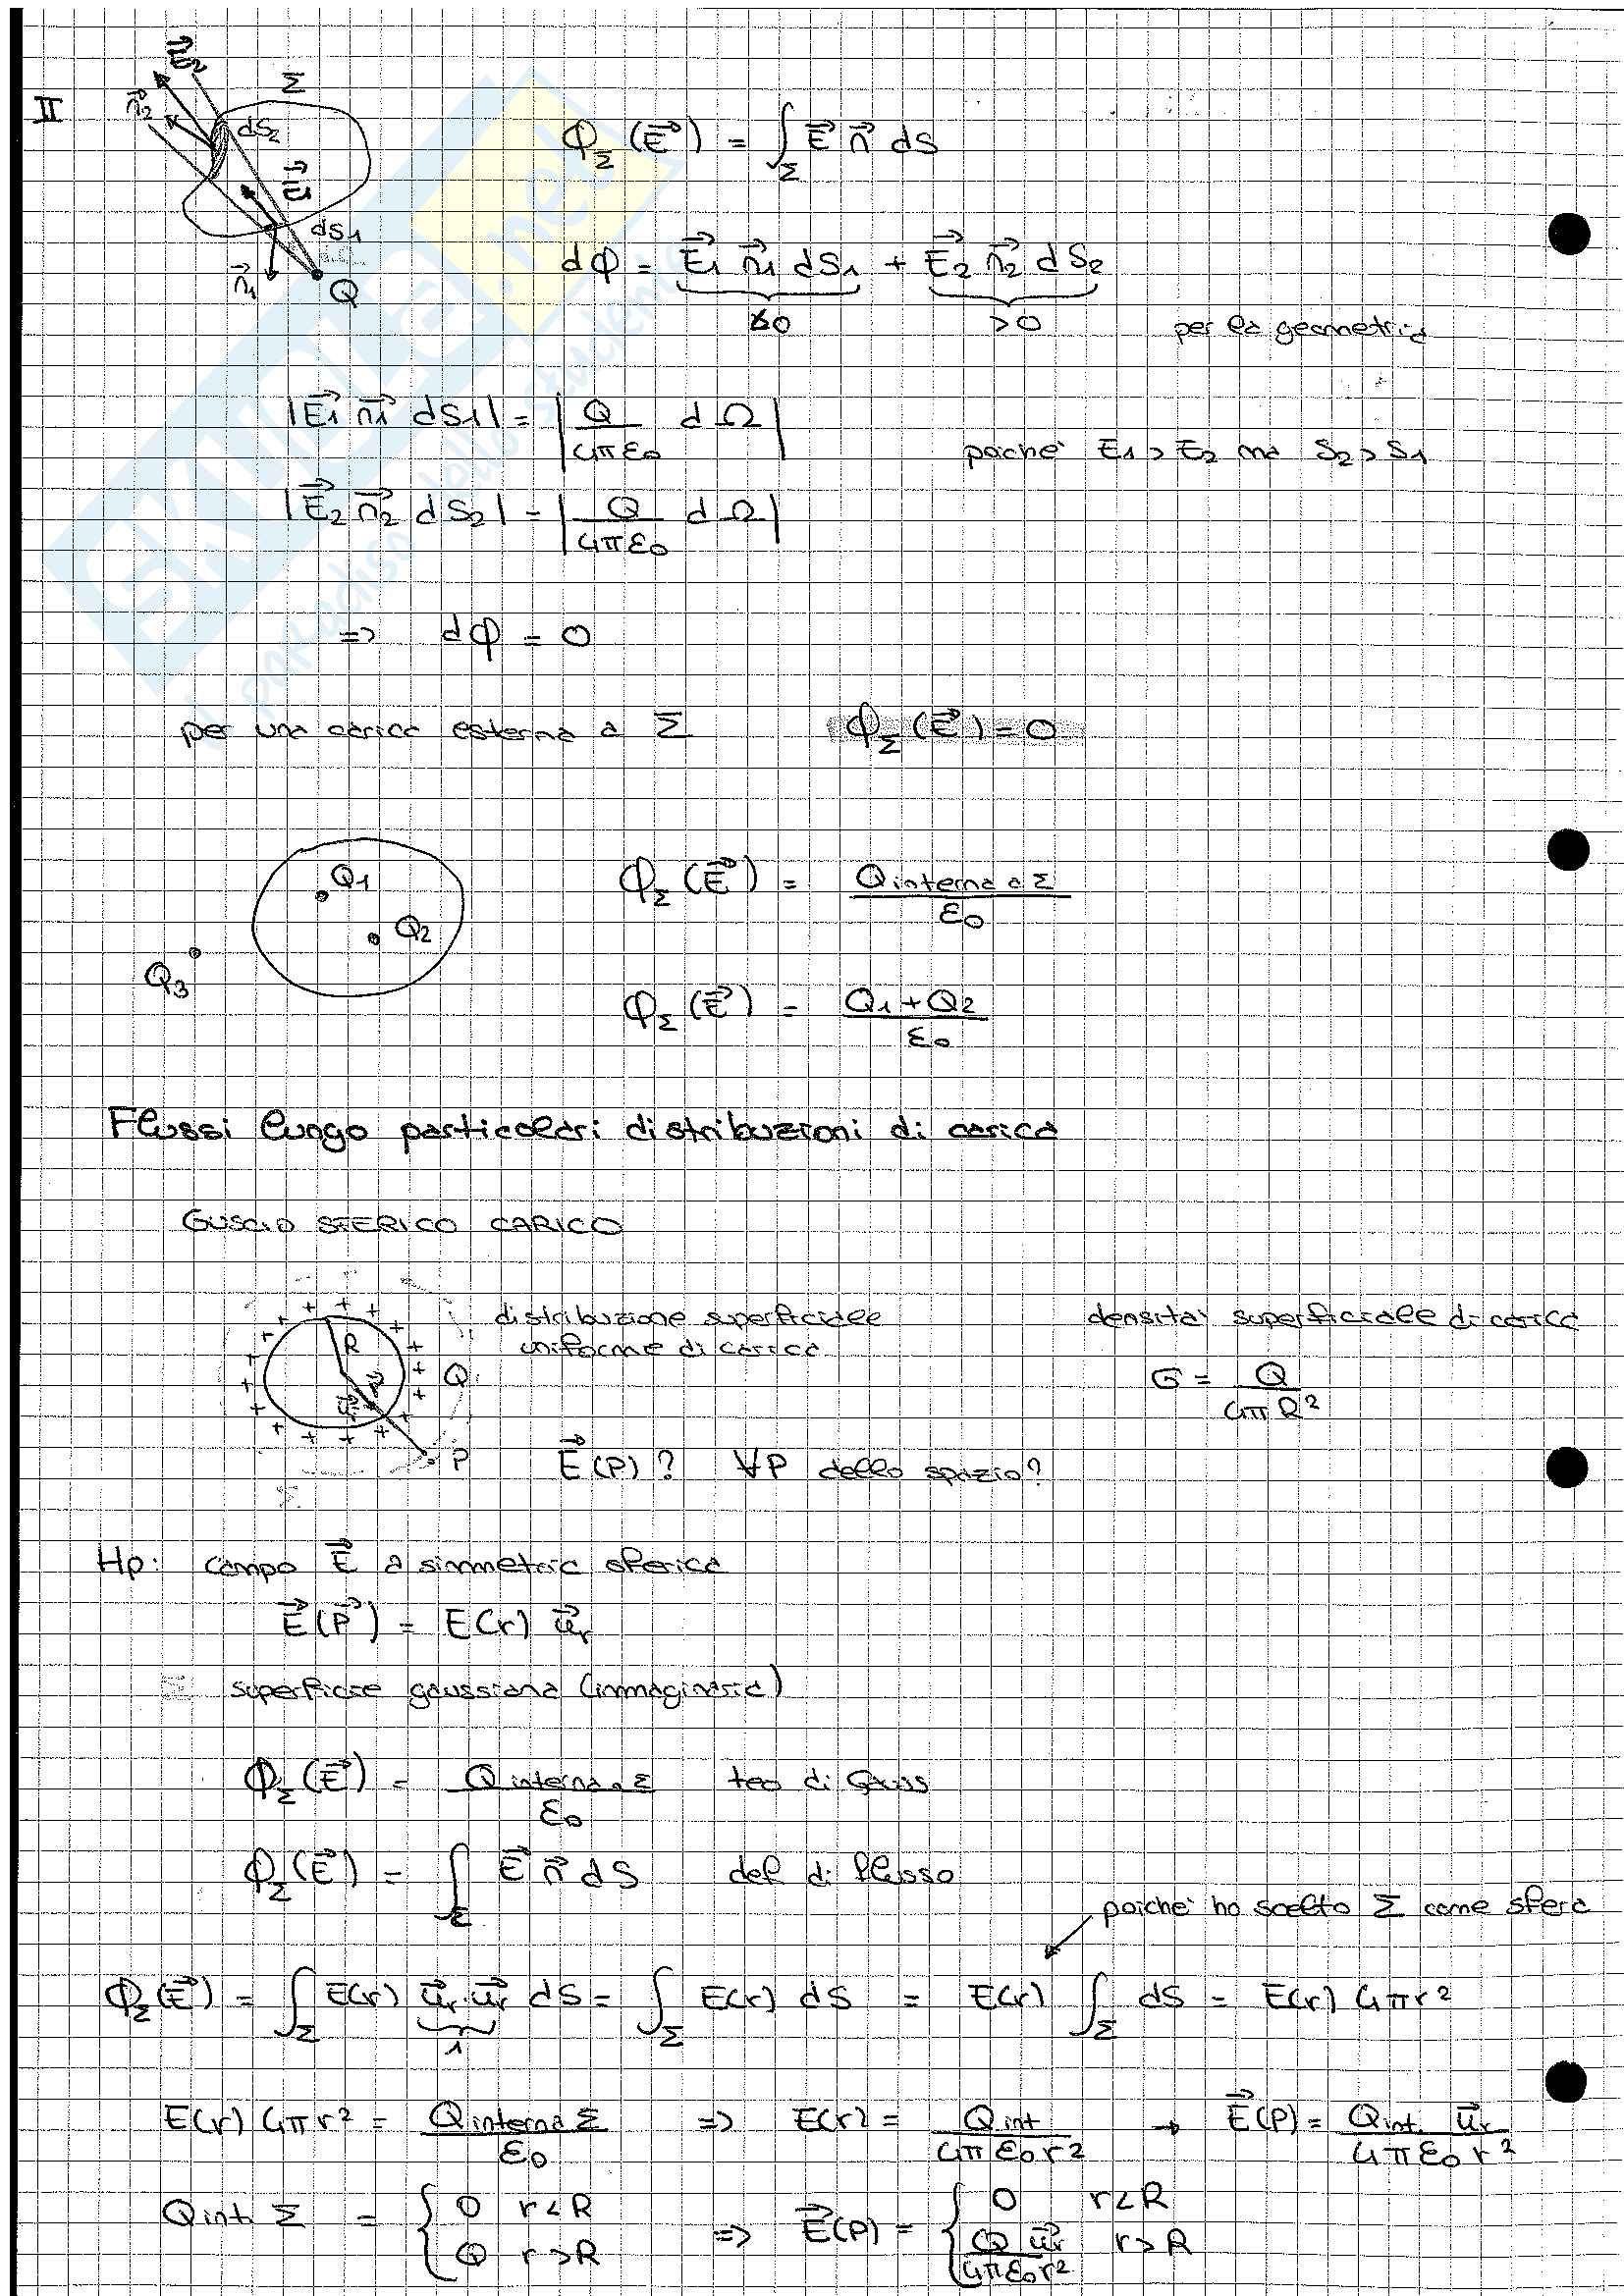 II
E⃗₂
n⃗₂
Σ
dS₂
E⃗₁
dS₁
n⃗₁
Q
Φ_Σ (E⃗) = ∫_Σ E⃗ n⃗ dS
dΦ = E⃗₁ n⃗₁ dS₁ + E⃗₂ n⃗₂ dS₂
<0 >0 per la geometria
|E⃗₁ n⃗₁ dS₁| = |Q/4πε₀ dΩ|
poiché E₁ > E₂ ma S₂ > S₁
|E⃗₂ n⃗₂ dS₂| = |Q/4πε₀ dΩ|
=> dΦ = 0
per una carica esterna a Σ Φ_Σ (E⃗) = 0
Q₁
Q₂
Q₃
Φ_Σ (E⃗) = Q interna a Σ / ε₀
Φ_Σ (E⃗) = Q₁ + Q₂ / ε₀
Flussi lungo particolari distribuzioni di carica
GUSCIO SFERICO CARICO
R
Q
u⃗r
r
P
distribuzione superficiale uniforme di carica
densità superficiale di carica
σ = Q / 4πR²
E⃗(P)? ∀P dello spazio?
Hp: campo E⃗ a simmetria sferica
E⃗(P⃗) = E(r) u⃗r
Σ superficie gaussiana (immaginaria)
Φ_Σ (E⃗) = Q interna a Σ / ε₀ teo di Gauss
Φ_Σ (E⃗) = ∫_Σ E⃗ n⃗ dS def di flusso
poiché ho scelto Σ come sfera
Φ_Σ (E⃗) = ∫_Σ E(r) u⃗r · u⃗r dS = ∫_Σ E(r) dS = E(r) ∫_Σ dS = E(r) 4πr²
1
E(r) 4πr² = Q interna Σ / ε₀ => E(r) = Qint / 4πε₀r² → E⃗(P) = Qint. u⃗r / 4πε₀r²
Qint Σ = { 0 r < R ; Q r > R => E⃗(P) = { 0 r < R ; Q u⃗r / 4πε₀r² r > R